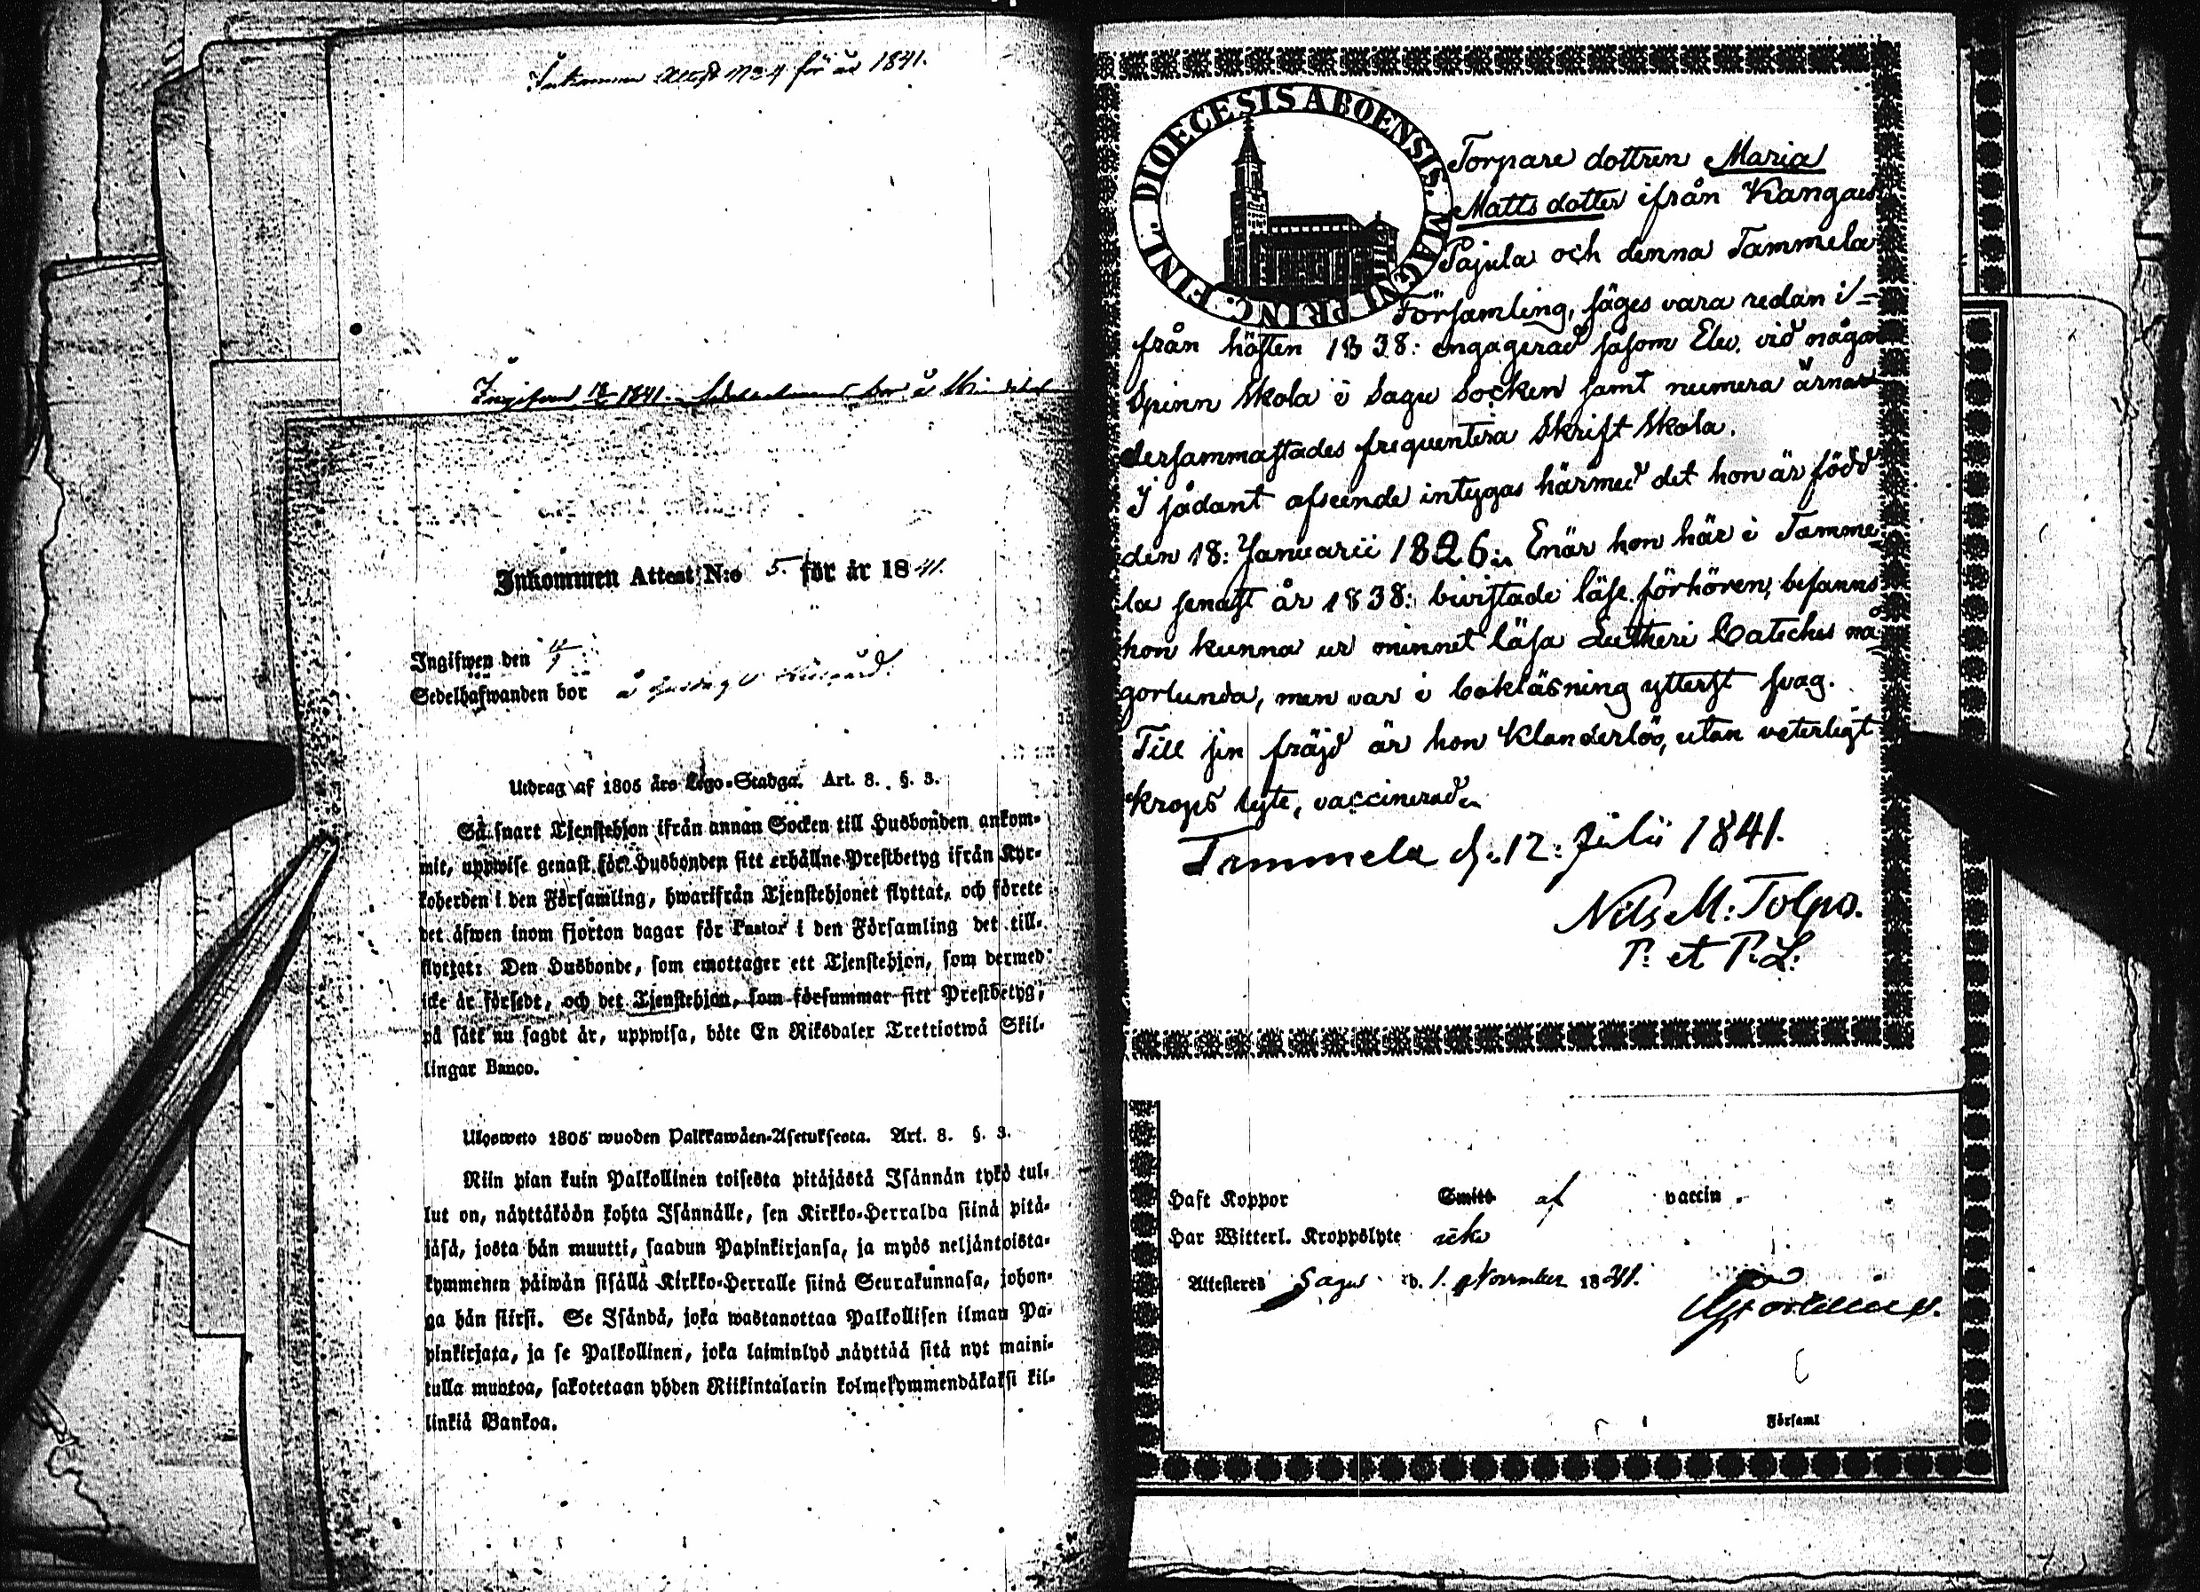 Inkommen Attest No 4 för år 1841.
Ingifven 1841. bor å
Inkommen Attest N:o 5. för år 1841.
Ingifwen den
Sedelhafwanden bor å
Utdrag af 1805 års Lego-Stadga. Art. 8. §. 3.
Så snart Tjenstehjon ifrån annan Socken till Husbonden ankom-
mit, uppwise genast för Husbonden sitt erhållne Prestbetyg ifrån Kyr-
koherden i den Församling, hwarifrån Tjenstehjonet flyttat, och förete
det äfwen inom fjorton dagar för Pastor i den Församling det till-
flyttat: Den Husbonde, som emottager ett Tjenstehjon, som dermed
icke är försedt, och det Tjenstehjon, som försummar sitt Prestbetyg,
på sätt nu sagdt är, uppwisa, böte En Riksdaler Trettiotwå Skil-
lingar Banco.
Ulosweto 1805 wuoden Palkkawäen-Asetuksesta. Art. 8. §. 3.
Niin pian kuin Palkollinen toisesta pitäjästä Isännän tykö tul-
lut on, näyttäköön kohta Isännälle, sen Kirkko-Herralda siinä pitä-
jäsä, josta hän muutti, saadun Papinkirjansa, ja myös neljäntoista-
kymmenen päiwän sisällä Kirkko-Herralle siinä Seurakunnasa, johon-
ga hän siirsi. Se Isändä, joka wastanottaa Palkollisen ilman Pa-
pinkirjata, ja se Palkollinen, joka laiminlyö näyttää sitä nyt maini-
tulla muotoa, sakotetaan yhden Riikintalarin kolmekymmendäkaksi kil-
linkiä Bankoa.
DIOECESIS ABOENSIS. MAGNI PRINC. FINL.
Torpare dottren Maria
Mattsdotter ifrån Kangais
Pajula och denna Tammela
Församling, säges vara redan i-
från hösten 1838: engagerad såsom Elev. vid någon
Spinn Skola i Sagu Socken samt numera ärnar
dersammastades frequentera Skrift Skola.
I sådant afseende intygas härmed det hon är född
den 18: Januarii 1826: Enär hon här i Tamme-
la senast år 1838: bivistade läse förhören, befanns
hon kunna ur minnet läsa Lutheri Cateches nå-
gorlunda, men var i bokläsning ytterst svag.
Till sin fräjd är hon Klanderlös, utan veterligt
Krops lyte, vaccinerad.
Tammela d. 12: Julii 1841.
Nils M: Tolpo.
P: et P: L:
Haft Koppor Smitt af vaccin.
Har Witterl. Kroppslyte icke
Attesteres Sagu d. 1. November 1841.
Församl